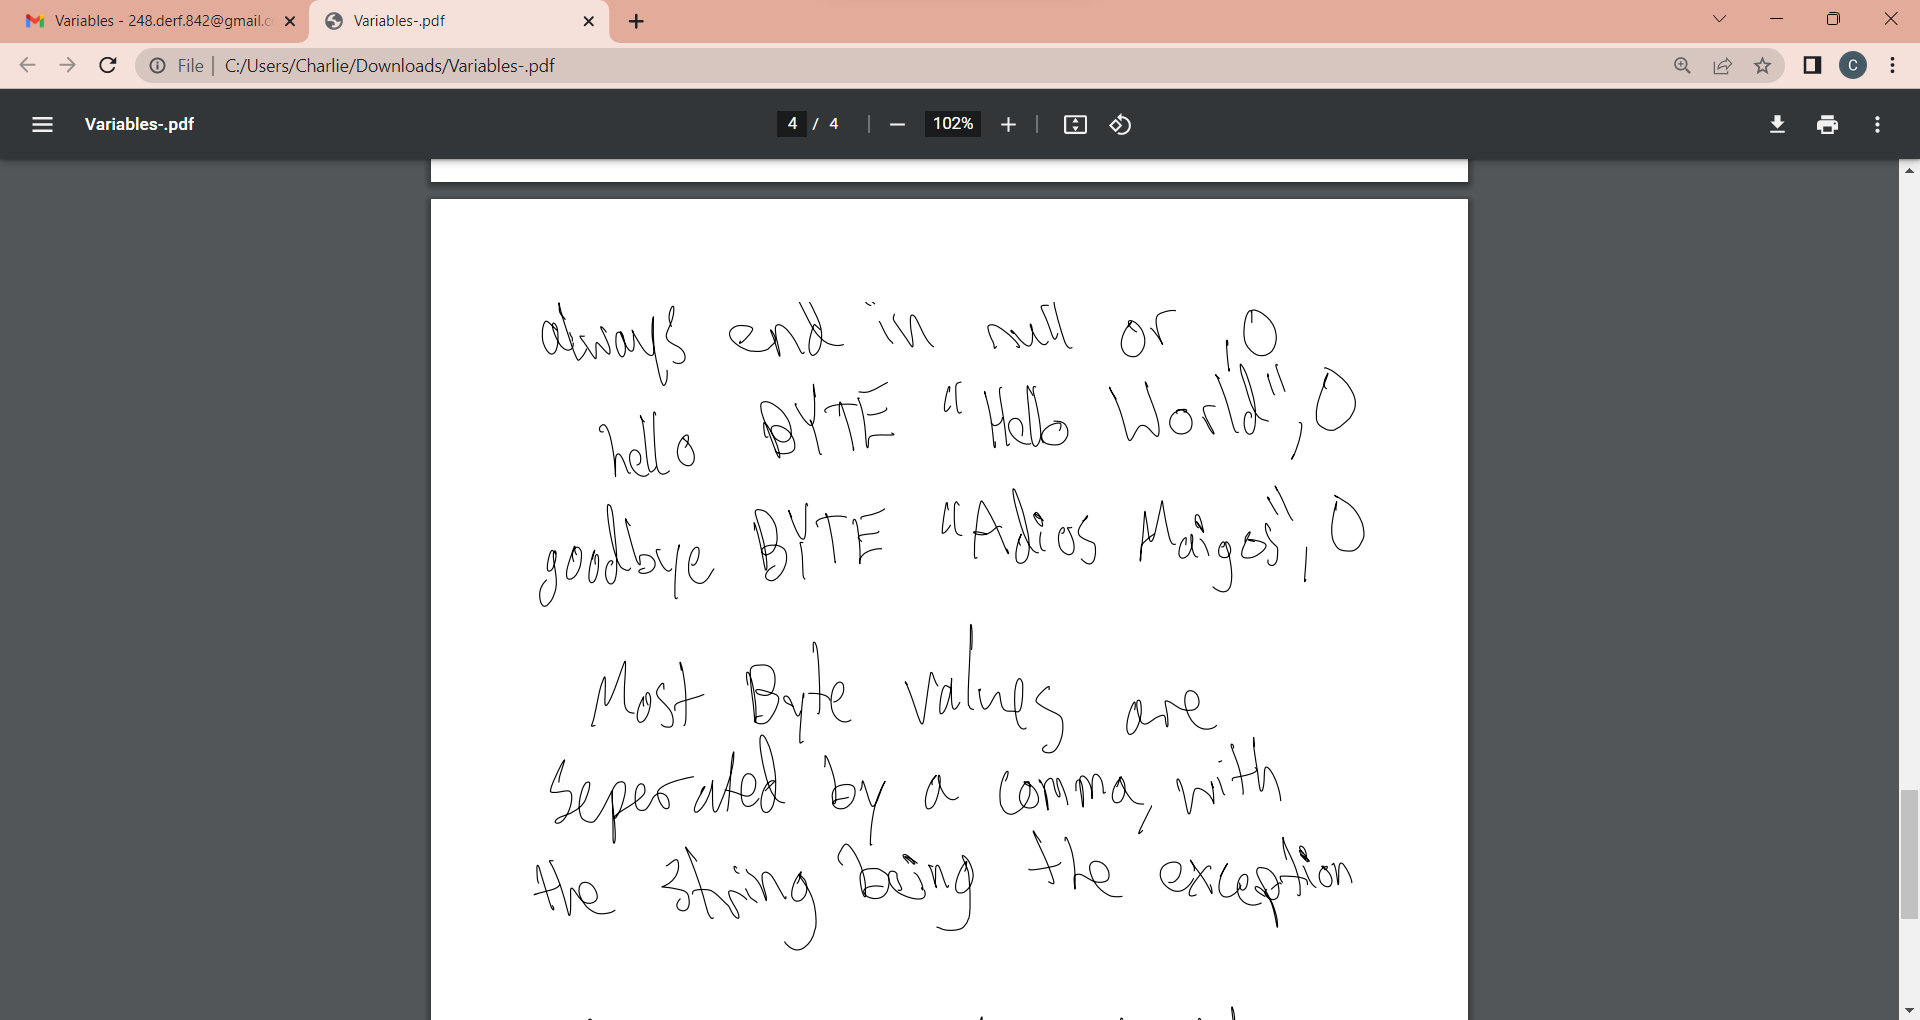 Variables - 248.derf.842@gmail.c
Variables-.pdf
File
C:/Users/Charlie/Downloads/Variables-.pdf
C
Variables-.pdf
4 / 4
102%
always end in null or ,0
hello BYTE "Hello World", 0
goodbye BYTE "Adios Maigos", 0
Most Byte values are
seperated by a comma, with
the string being the exception